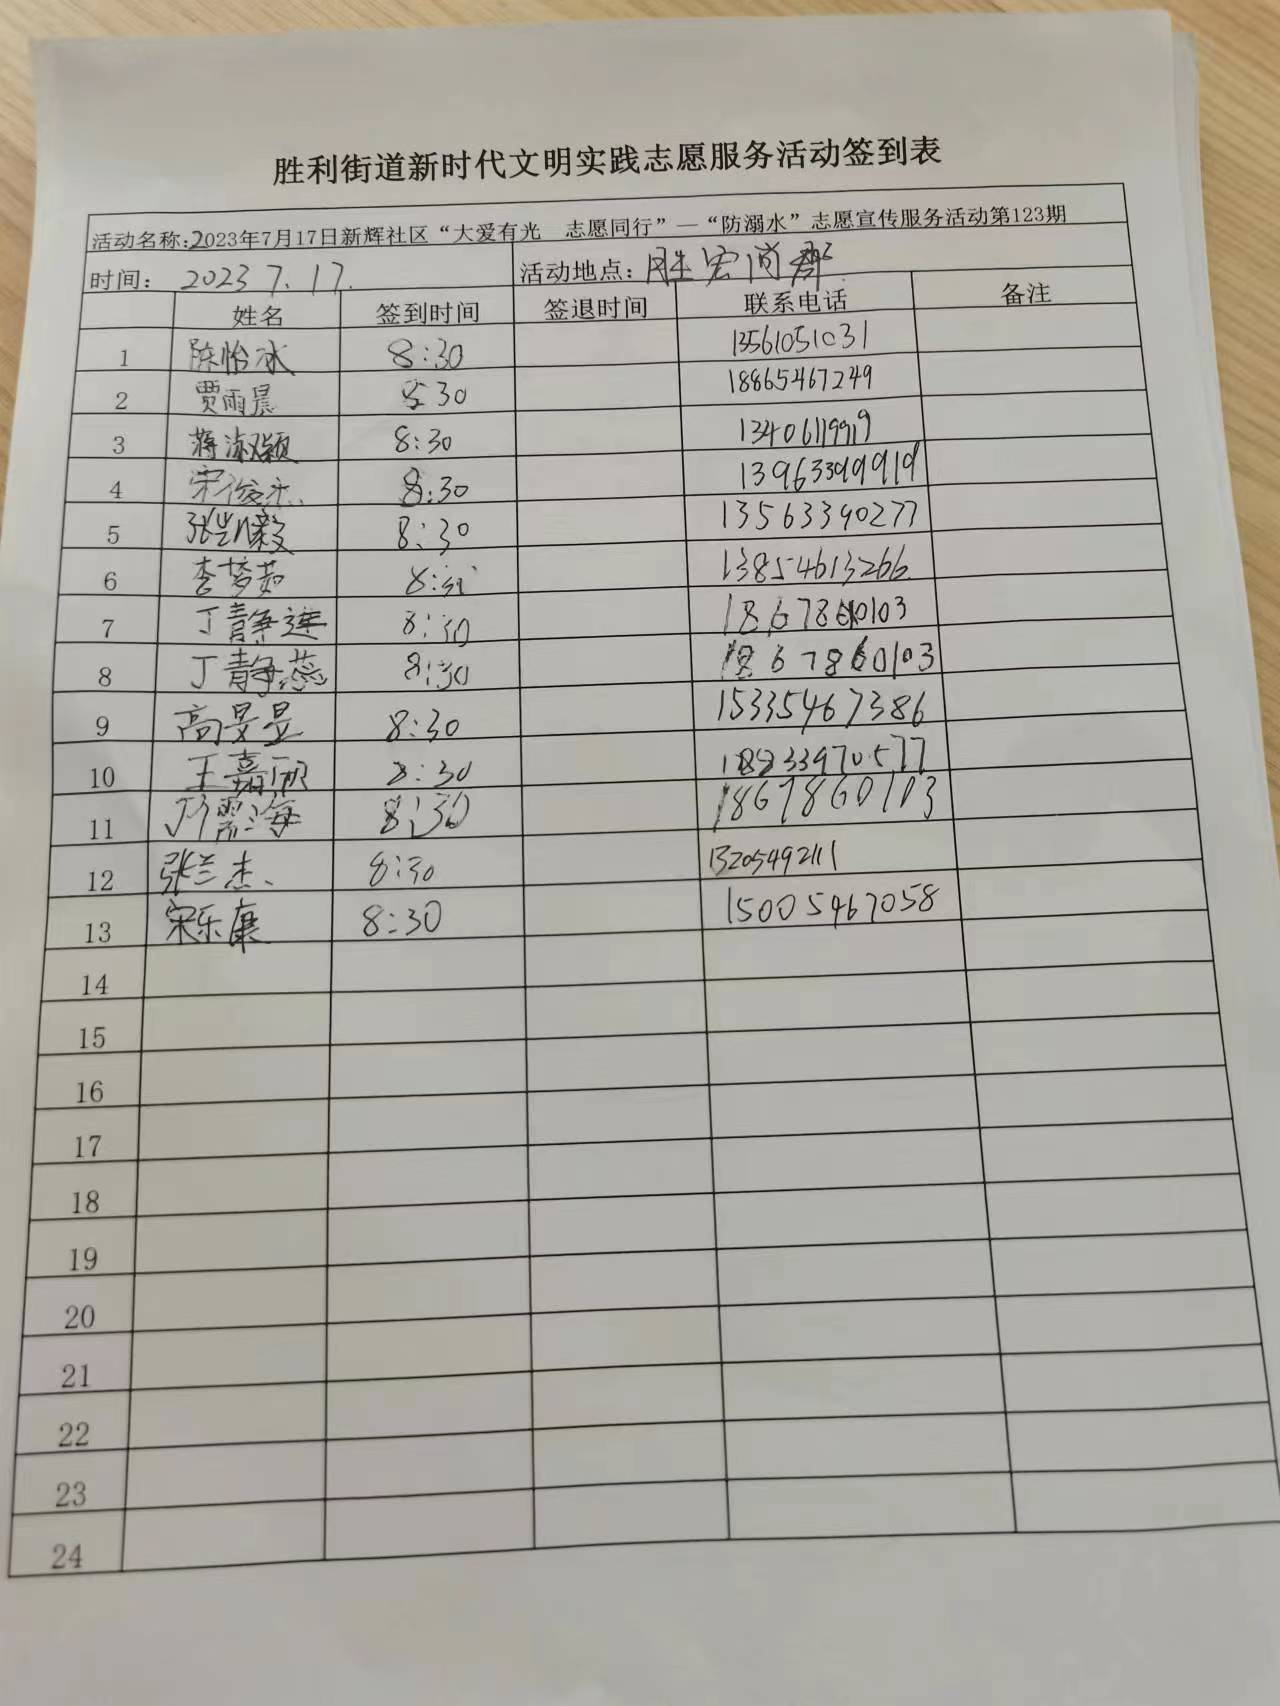 胜利街道新时代文明实践志愿服务活动签到表
活动名称:2023年7月17日新辉社区“大爱有光 志愿同行”—“防溺水”志愿宣传服务活动第123期
时间： 2023 7.17. 活动地点：胜宏尚都
姓名 签到时间 签退时间 联系电话 备注
1 陈怡冰 8:30 13561051031
2 贾雨晨 8:30 18865467249
3 蒋淑颖 8:30 13406119919
4 宋俊杰 8:30 13963399919
5 张凯毅 8:30 13563390277
6 李梦茹 8:30 13854613266
7 丁静 8:30 1867860103
8 丁静蕊 8:30 1867860103
9 高旻昱 8:30 15335467386
10 王嘉 8:30 18233970577
11 8:30 1867860103
12 张兰杰 8:30 13205492111
13 宋乐康 8:30 15005467058
14
15
16
17
18
19
20
21
22
23
24